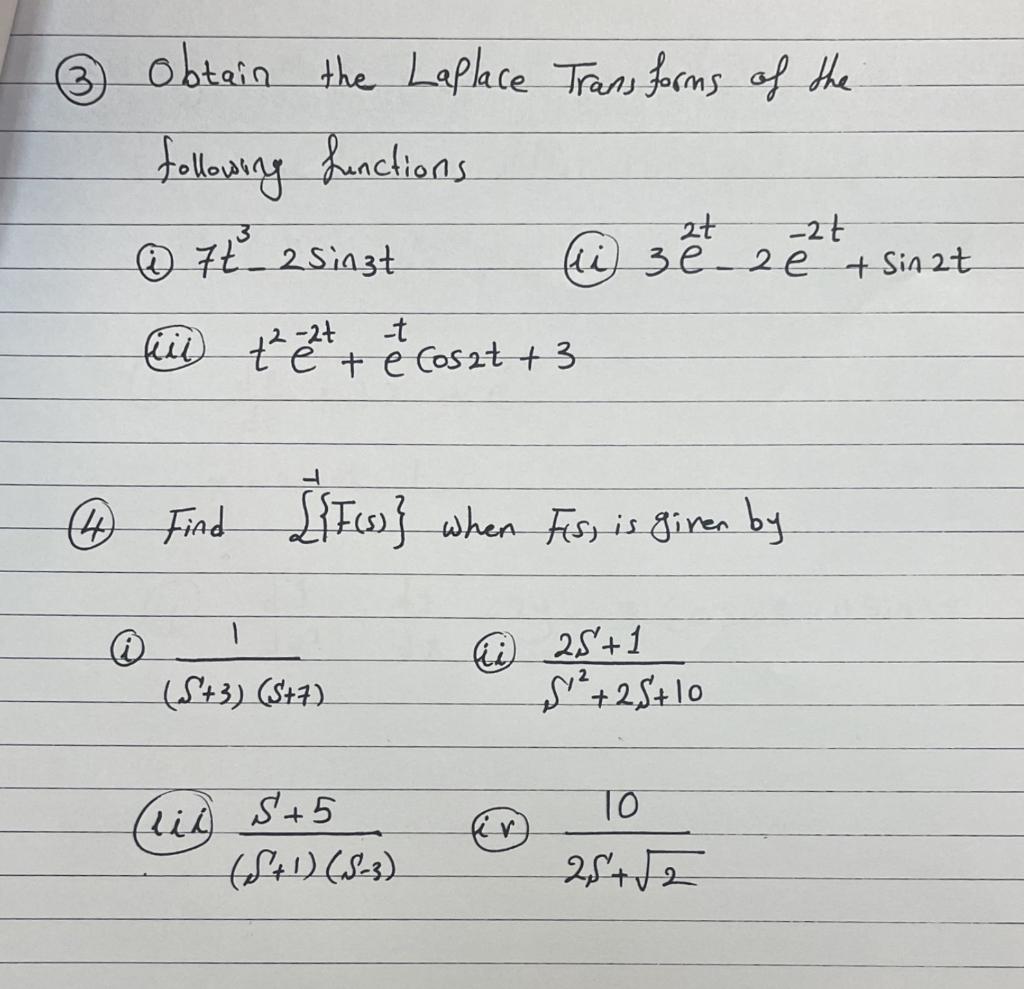 ③ Obtain the Laplace Transforms of the
following functions
ⓘ 7t³ - 2 sin3t    ⓘⓘ 3e^{2t} - 2e^{-2t} + sin 2t
ⓘⓘⓘ t² e^{-2t} + e^{-t} cos2t + 3
④ Find ℒ^{-1}{F(s)} when F(s) is given by
(i) 1/((S+3)(S+7))    (ii) (2S+1)/(S²+2S+10)
(iii) (S+5)/((S+1)(S-3))    (iv) 10/(2S+√2)